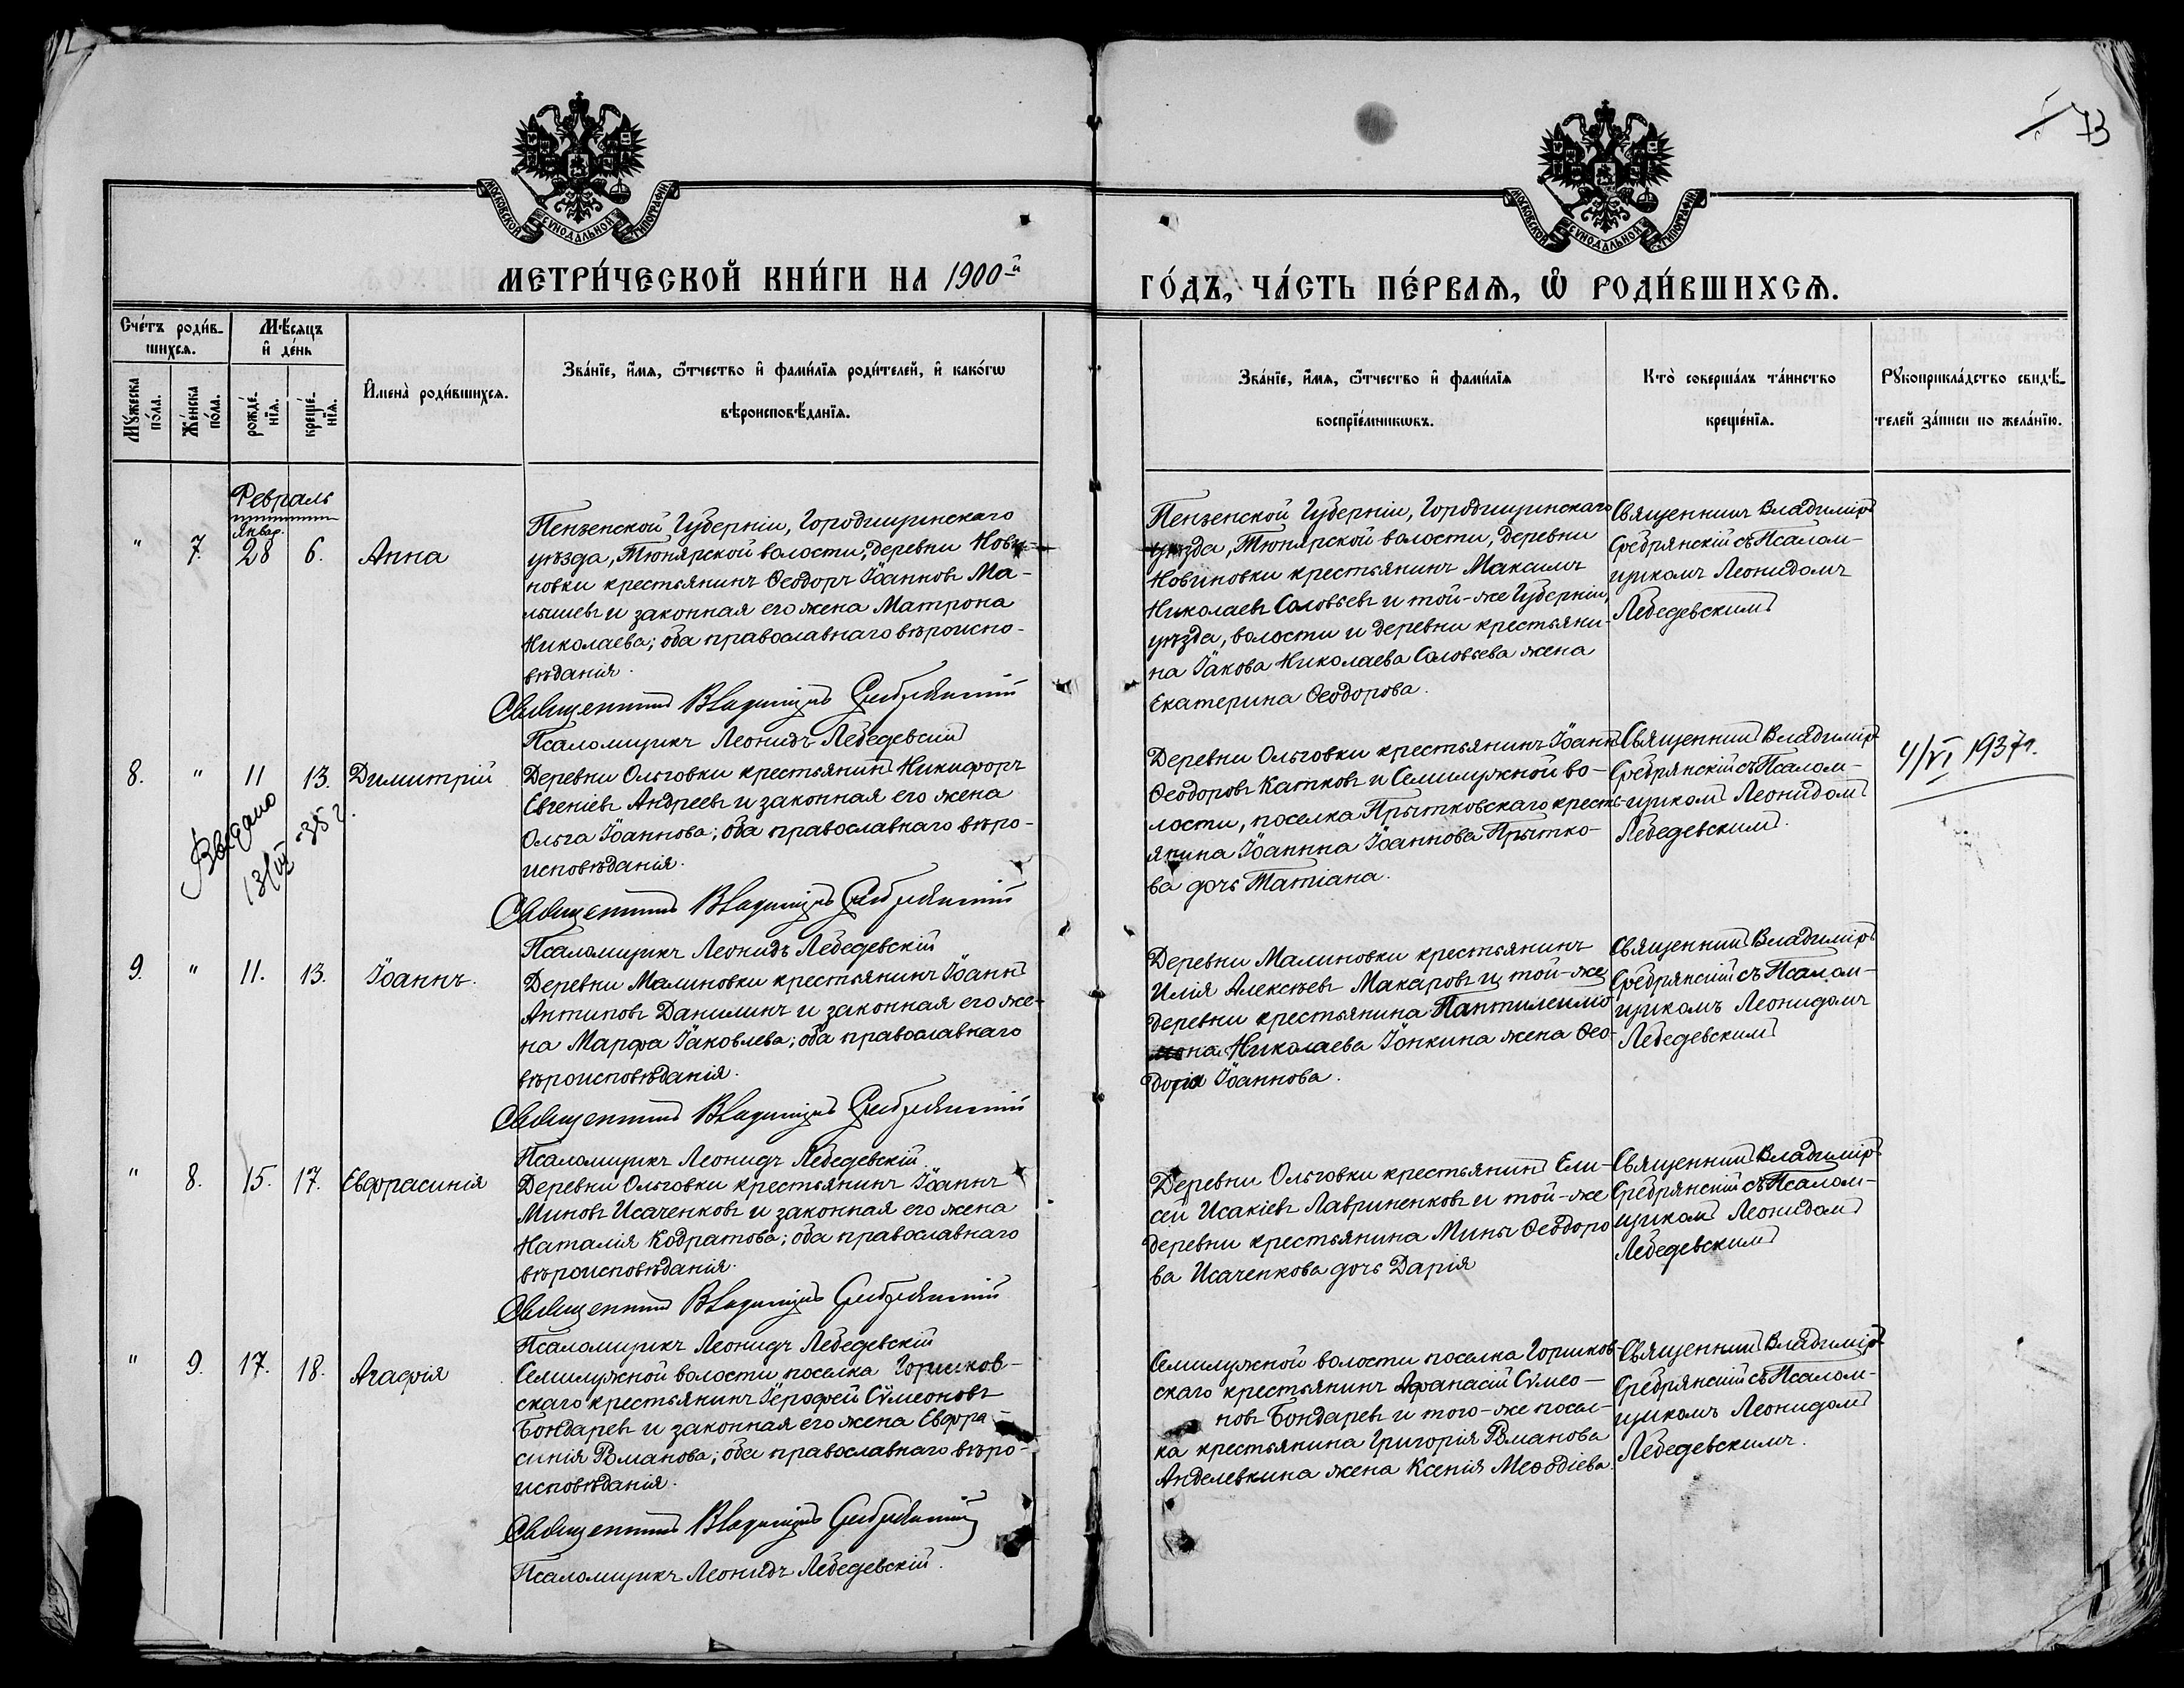 73
МОСКОВСКОЙ СѴНОДАЛЬНОЙ ТИПОГРАФІИ
МОСКОВСКОЙ СѴНОДАЛЬНОЙ ТИПОГРАФІИ
МЕТРИ́ЧЕСКОЙ КНИ́ГИ НА 1900-й
ГО́ДЪ, ЧА́СТЬ ПЕ́РВАѦ, Ѡ҆ РОДИ́ВШИХСѦ.
Сче́тъ роди́в-
шихсѧ.
Мѣ́сѧцъ
и҆ де́нь
Мꙋ́жеска
по́ла.
Же́нска
по́ла.
рожде́-
нїѧ.
креще́-
нїѧ.
И҆мена̀ роди́вшихсѧ.
Зва́нїе, и҆́мѧ, ѻ҆́тчество и҆ фами́лїѧ роди́телей, и҆ како́гѡ
вѣроисповѣ́данїѧ.
Зва́нїе, и҆́мѧ, ѻ҆́тчество и҆ фами́лїѧ
воспрїе́мникѡвъ.
Кто̀ соверша́лъ та́инство
креще́нїѧ.
Рꙋкоприкла́дство свидѣ́-
телей за́писи по жела́нїю.
Февраль
Январ.
" 7. 28 6. Анна
Пензенской Губерніи, Городищинскаго
уѣзда, Тюнярской волости, деревни Нови-
новки крестьянинъ Ѳеодоръ Іоанновъ Ма-
лышевъ и законная его жена Матрона
Николаева; оба православнаго вѣроиспо-
вѣданія.
Священникъ Владиміръ Сребрянскій
Псаломщикъ Леонидъ Лебедевскій
Пензенской Губерніи, Городищинскаго
уѣзда, Тюнярской волости, деревни
Новиновки крестьянинъ Максимъ
Николаевъ Соловьевъ и той-же Губерніи,
уѣзда, волости и деревни крестьяни-
на Іакова Николаева Соловьева жена
Екатерина Ѳеодорова.
Священникъ Владиміръ
Сребрянскій съ Псалом-
щикомъ Леонидомъ
Лебедевскимъ
8. " 11 13. Димитрій
Выдано
13/VII-35 г.
Деревни Ольговки крестьянинъ Никифоръ
Евгеніевъ Андреевъ и законная его жена
Ольга Іоаннова; оба православнаго вѣро-
исповѣданія.
Священникъ Владиміръ Сребрянскій
Псаломщикъ Леонидъ Лебедевскій
Деревни Ольговки крестьянинъ Іоаннъ
Ѳеодоровъ Катковъ и Семилужной во-
лости, поселка Прытковскаго кресть-
янина Іоаннна Іоаннова Прытко-
ва дочь Татіана.
Священникъ Владиміръ
Сребрянскій съ Псалом-
щикомъ Леонидомъ
Лебедевскимъ.
4/VI 1937г.
9. " 11. 13. Іоаннъ.
Деревни Малиновки крестьянинъ Іоаннъ
Антиповъ Данилинъ и законная его же-
на Марфа Іаковлева; оба православнаго
вѣроисповѣданія.
Священникъ Владиміръ Сребрянскій
Псаломщикъ Леонидъ Лебедевскій
Деревни Малиновки крестьянинъ
Илія Алексѣевъ Макаровъ и той-же
деревни крестьянина Пантилеимо
на Николаева Іонкина жена Ѳео-
дотія Іоаннова.
Священникъ Владиміръ
Сребрянскій съ Псалом-
щикомъ Леонидомъ
Лебедевскимъ
" 8. 15. 17. Евфрасинія
Деревни Ольговки крестьянинъ Іоаннъ
Миновъ Исаченковъ и законная его жена
Наталія Кодратова; оба православнаго
вѣроисповѣданія.
Священникъ Владиміръ Сребрянскій
Псаломщикъ Леонидъ Лебедевскій
Деревни Ольговки крестьянинъ Ели-
сей Исакіевъ Лавриненковъ и той-же
деревни крестьянина Мины Ѳеодоро
ва Исаченкова дочь Дарія
Священникъ Владиміръ
Сребрянскій съ Псалом-
щикомъ Леонидомъ
Лебедевскимъ
" 9. 17. 18. Агафія
Семилужной волости поселка Горшков-
скаго крестьянинъ Іерофей Сѵмеоновъ
Бондаревъ и законная его жена Евфра-
синія Романова; оба православнаго вѣро-
исповѣданія.
Священникъ Владиміръ Сребрянскій
Псаломщикъ Леонидъ Лебедевскій.
Семилужной волости поселка Горшков-
скаго крестьянинъ Афанасій Сѵмео-
новъ Бондаревъ и того-же посел-
ка крестьянина Григорія Романова
Анделевкина жена Ксенія Меѳодіева.
Священникъ Владиміръ
Сребрянскій съ Псалом-
щикомъ Леонидомъ
Лебедевскимъ.